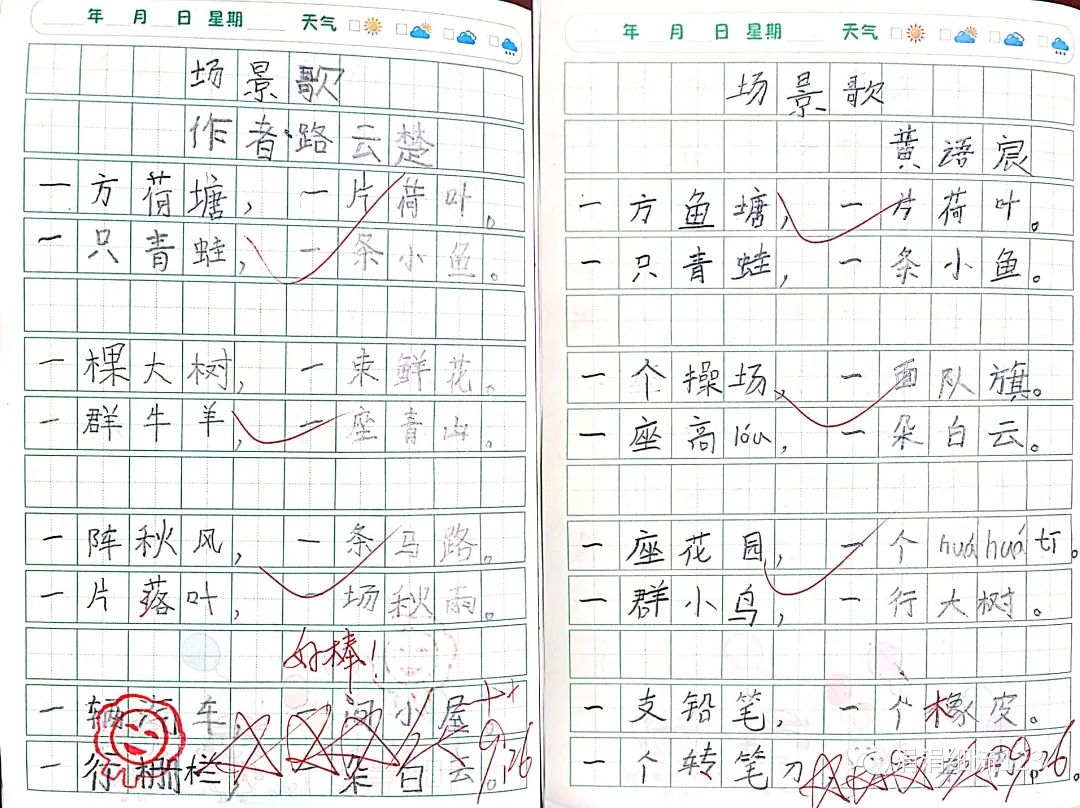 年 月 日 星期 天气
场景歌
作者:路云楚
一方荷塘，一片荷叶。
一只青蛙，一条小鱼。
一棵大树，一束鲜花。
一群牛羊，一座青山。
一阵秋风，一条马路。
一片落叶，一场秋雨。
好棒！
一辆汽车，一间小屋
一行栅栏，朵白云
9.26
年 月 日 星期 天气
场景歌
黄语宸
一方鱼塘，一片荷叶。
一只青蛙，一条小鱼。
一个操场，一面队旗。
一座高lóu，一朵白云。
一座花园，一个huáhuátī。
一群小鸟，一行大树。
一支铅笔，一个橡皮。
一个转笔刀
9.26